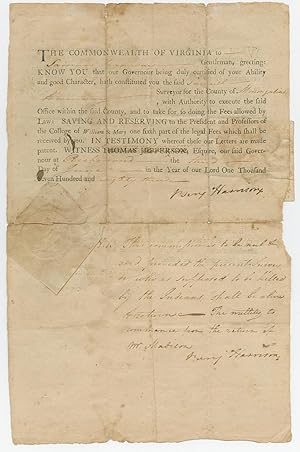 THE COMMONWEALTH OF VIRGINIA to
Gentleman, greeting:
KNOW YOU that our Governour being duly certified of your Ability
and good Character, hath constituted you the said
Surveyor for the County of
, with Authority to execute the said
Office within the said County, and to take for so doing the Fees allowed by
Law; SAVING AND RESERVING to the President and Professors of
the College of William & Mary one sixth part of the legal Fees which shall be
received by you. IN TESTIMONY whereof these our Letters are made
patent. WITNESS THOMAS JEFFERSON, Esquire, our said Gover-
nour at the
Day of in the Year of our Lord One Thousand
Seven Hundred and
Benj Harrison
This commission is to be null and
void, provided the present Surveyor
who is supposed to be killed
by the Indians shall be alive
The nullity to
commence from the return of
Mr Madison
Benj Harrison